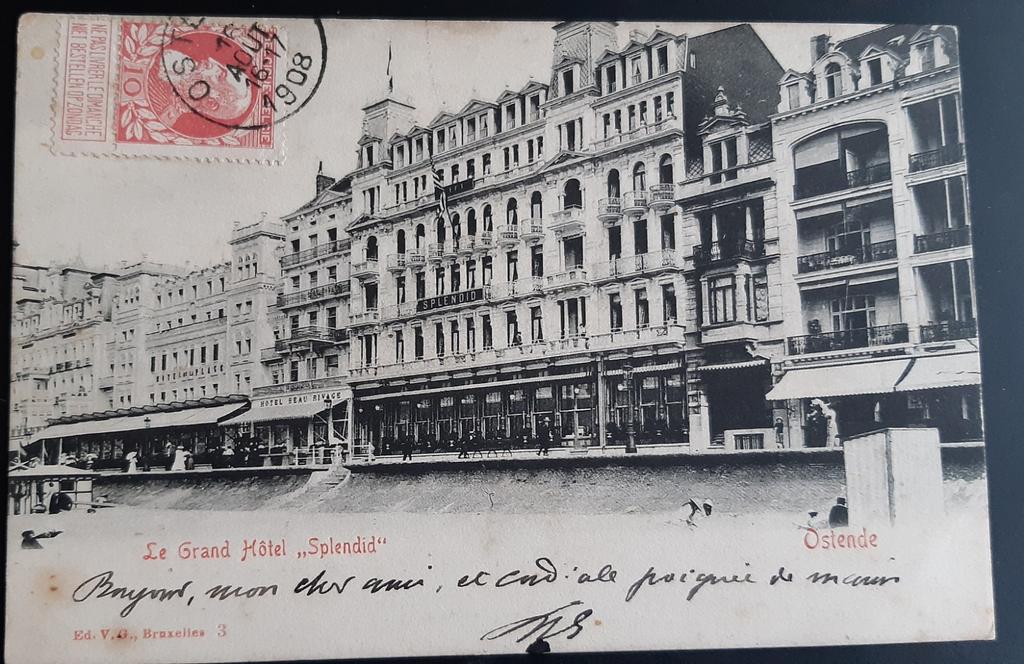 NE PAS LIVRER LE DIMANCHE
NIET BESTELLEN OP ZONDAG
10
AOUT
16-17
1908
SPLENDID
HOTEL BEAU RIVAGE
Le Grand Hôtel „Splendid"
Ostende
Bonjour, mon cher ami, et cordiale poignée de main
Ed. V. G., Bruxelles 3